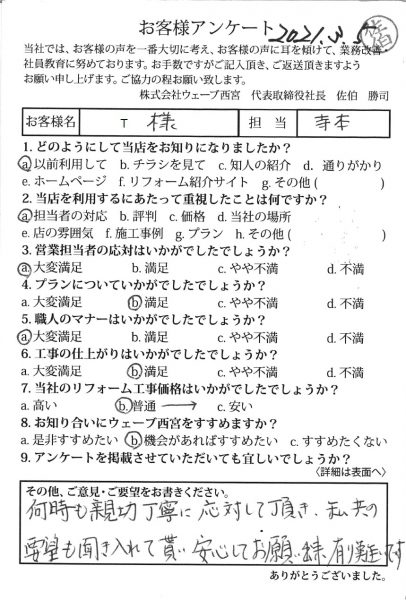 お客様アンケート 2021.3.5 佐伯
当社では、お客様の声を一番大切に考え、お客様の声に耳を傾けて、業務改善・
社員教育に努めております。お手数ですがご記入頂き、ご返送頂きますよう
お願い申し上げます。ご協力の程お願い致します。
株式会社ウェーブ西宮 代表取締役社長 佐伯 勝司
お客様名 T 様 担当 寺本
1. どのようにして当店をお知りになりましたか?
a.以前利用して b. チラシを見て c. 知人の紹介 d. 通りがかり
e. ホームページ f. リフォーム紹介サイト g. その他 ( )
2. 当店を利用するにあたって重視したことは何ですか?
a.担当者の対応 b. 評判 c. 価格 d. 当社の場所
e. 店の雰囲気 f. 施工事例 g. プラン h. その他 ( )
3. 営業担当者の応対はいかがでしたでしょうか?
a.大変満足 b. 満足 c. やや不満 d. 不満
4. プランについていかがでしたでしょうか?
a. 大変満足 b.満足 c. やや不満 d. 不満
5. 職人のマナーはいかがでしたでしょうか?
a.大変満足 b. 満足 c. やや不満 d. 不満
6. 工事の仕上がりはいかがでしたでしょうか?
a. 大変満足 b.満足 c. やや不満 d. 不満
7. 当社のリフォーム工事価格はいかがでしたでしょうか?
a. 高い b.普通 → c. 安い
8. お知り合いにウェーブ西宮をすすめますか?
a. 是非すすめたい b.機会があればすすめたい c. すすめたくない
9. アンケートを掲載させていただいても宜しいでしょうか?
〈詳細は表面へ〉
その他、ご意見・ご要望をお書きください。
何時も親切丁寧に応対して頂き、私共の
要望も聞き入れて貰い安心してお願い出来、有難いです
ありがとうございました。